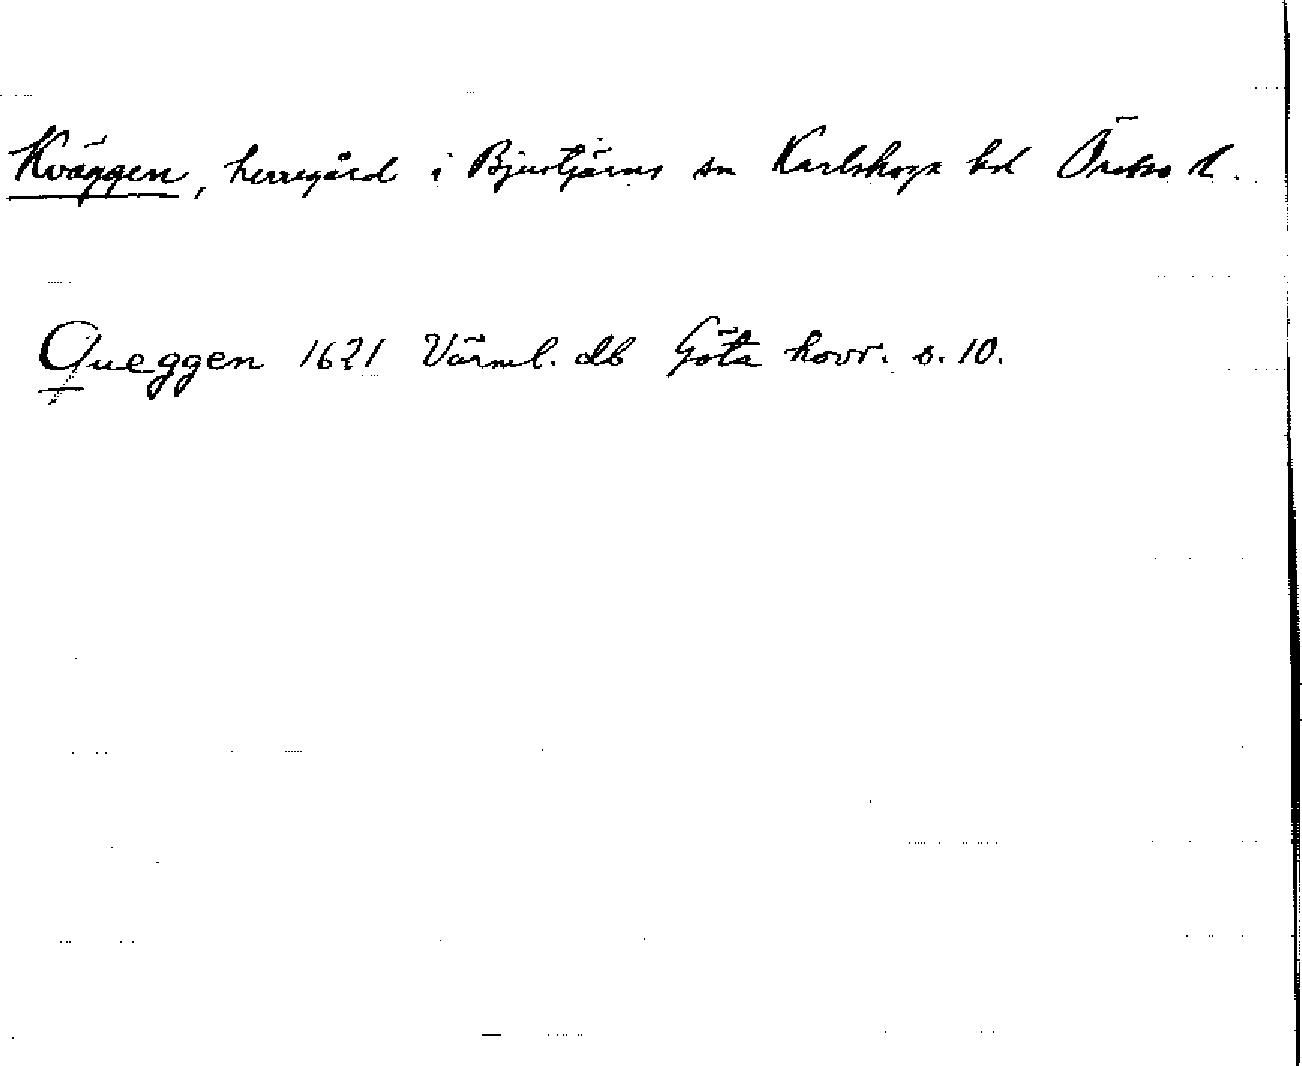 Kväggen, herregård i Bjurtjärns sn Karlskoga hd Örebro l.
Queggen 1621 Värml. db Göta hovr. s. 10.